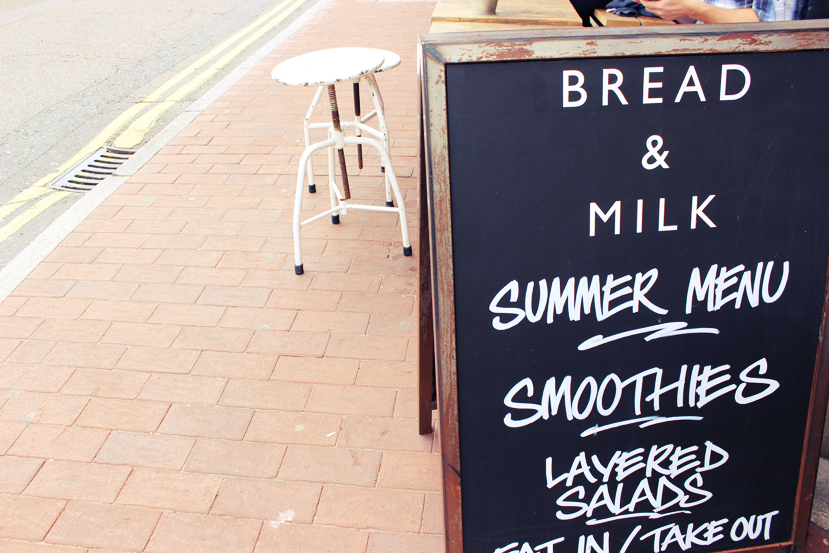 BREAD
&
MILK
SUMMER MENU
SMOOTHIES
LAYERED
SALADS
EAT IN / TAKE OUT